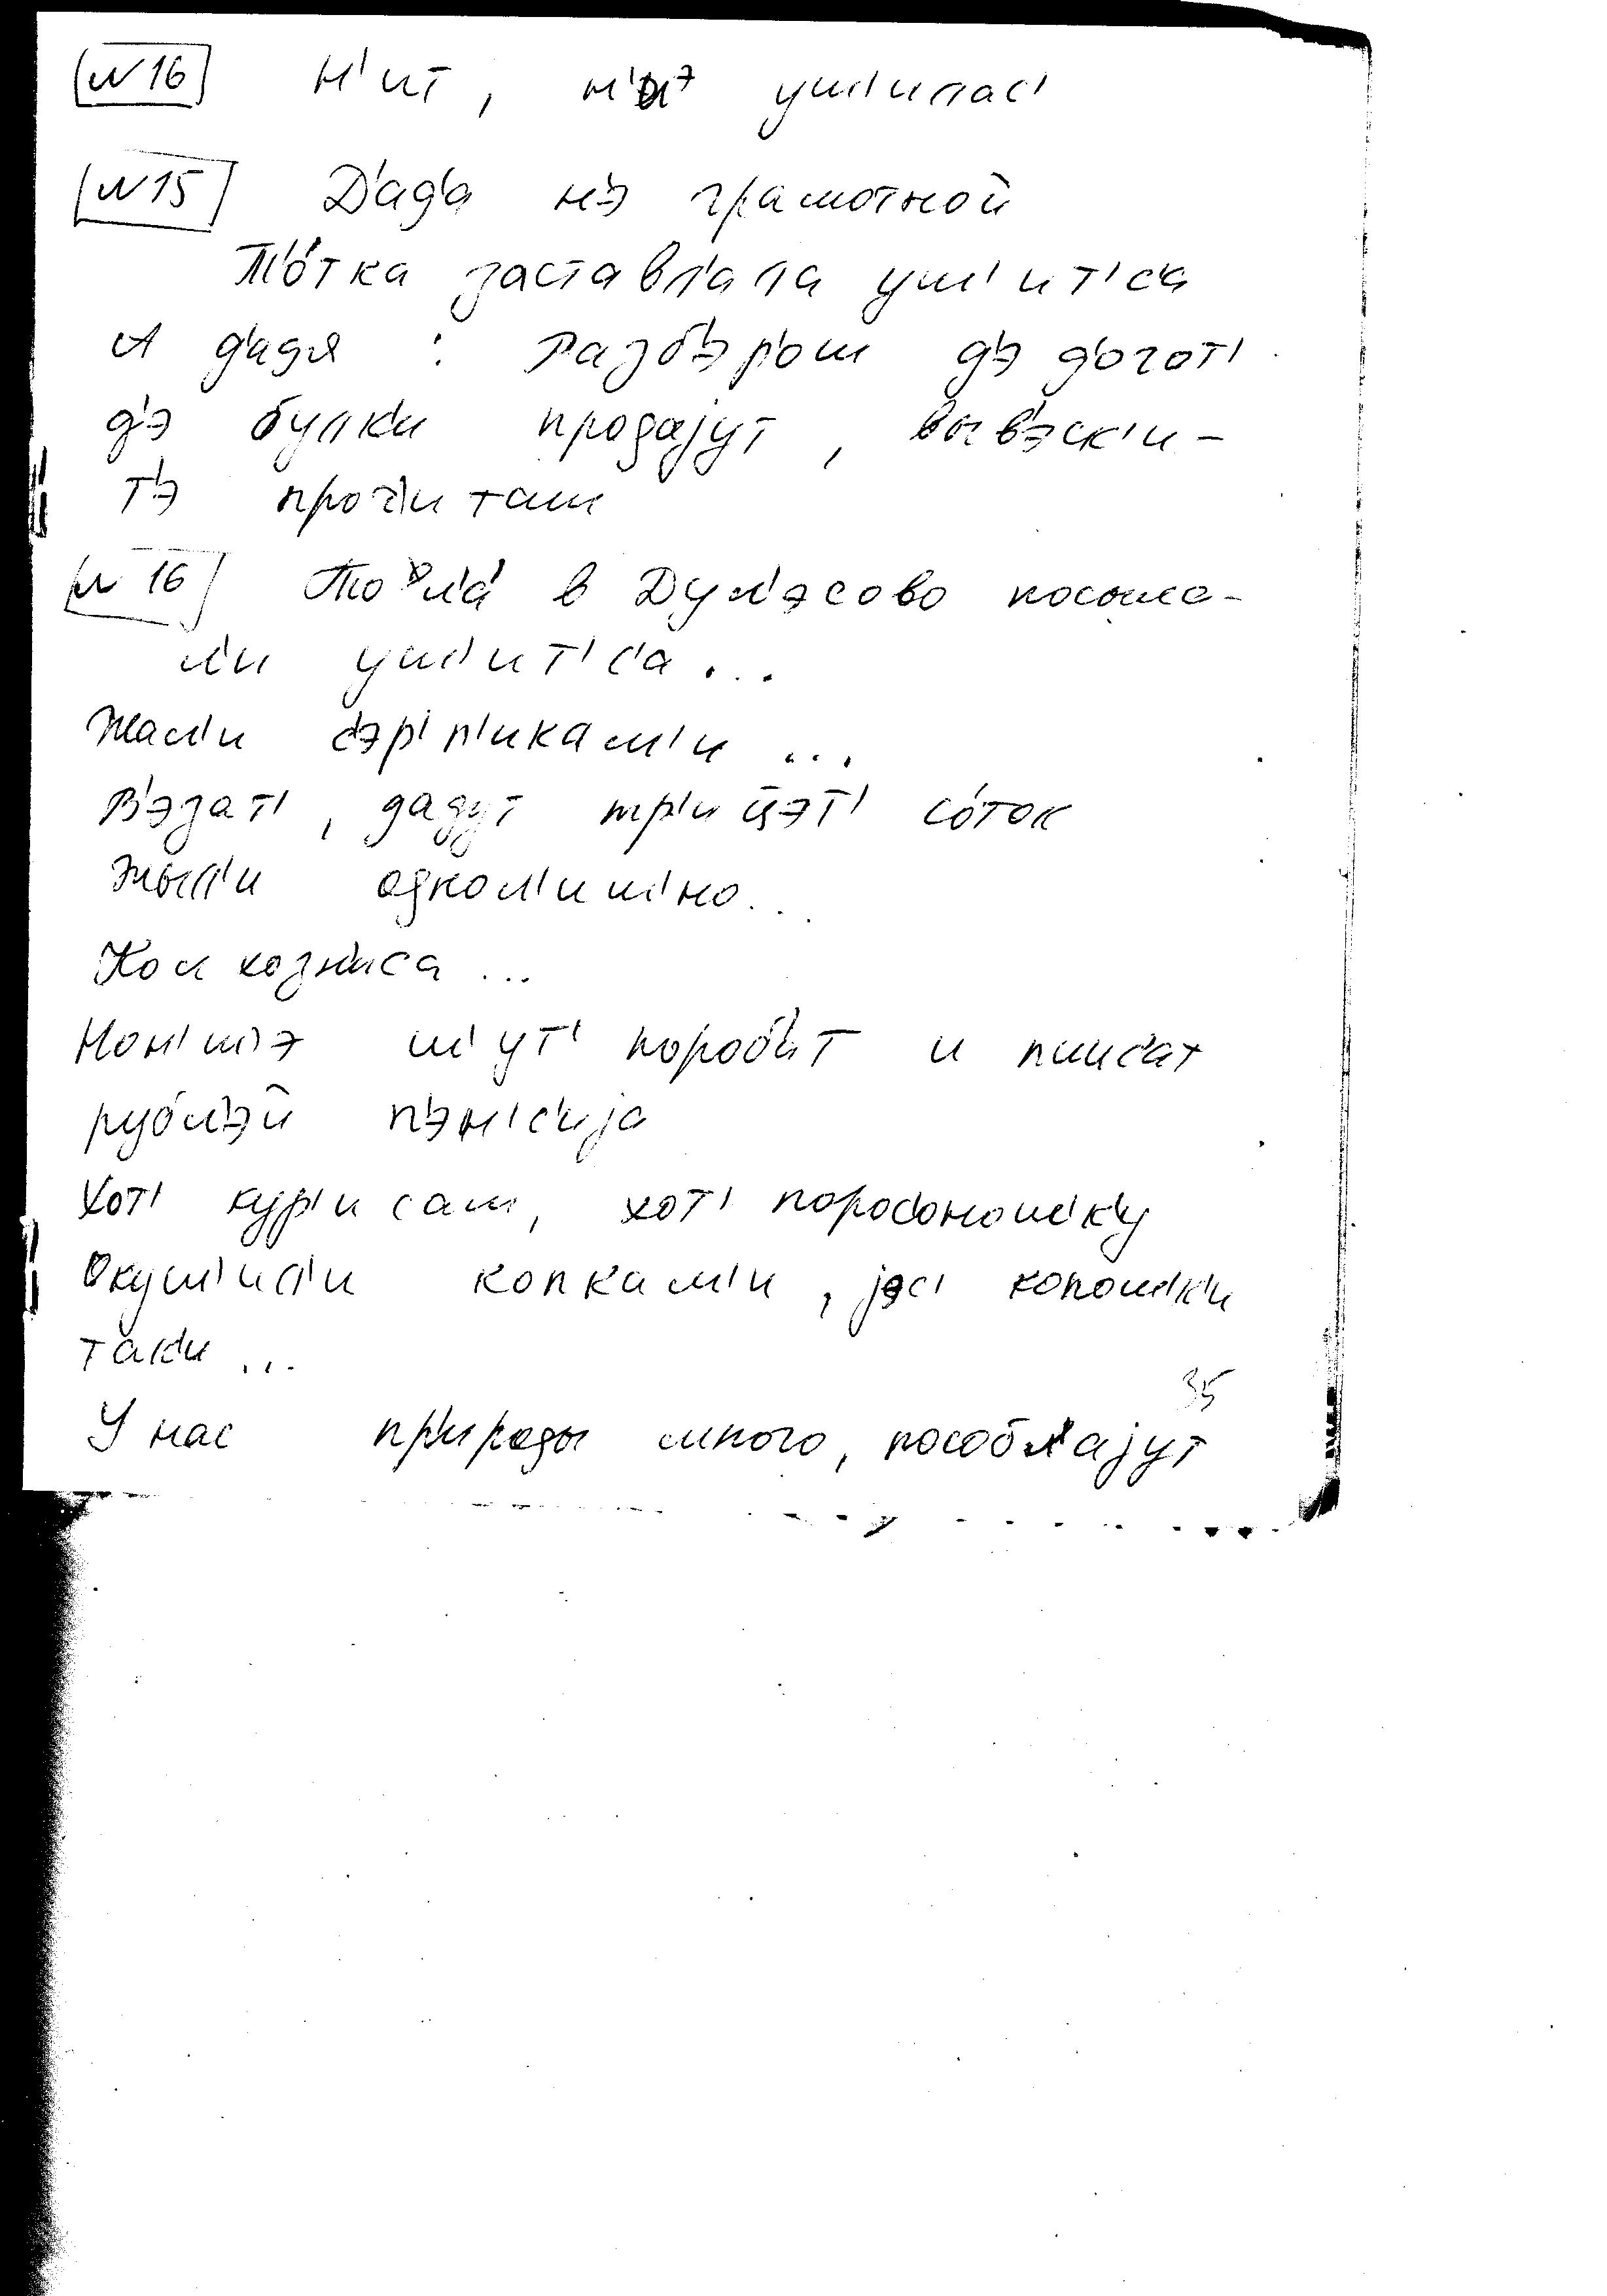 №16 н'ит, н'э уш'илас'
№15 Д'ад'а н'э грамотной
Т'о́тка заставл'ала уш'ит'с'а
А д'адя : Разб'эр'ош д'э д'огот'
д'э булк'и продајут, выв'эск'и-
т'э проч'иташ
№16 в Дул'эсово посыла-
л'и уш'ит'с'а...
Жал'и с'эр'п'икам'и...
В'эзат', дадут тр'ицэт' со́ток
Жыл'и однол'иш'но...
Колхозн'иса...
Нон'ш'э ш'ут' пороб'ат и пиис'ат
рубл'эй п'эн'с'ија
Хот' кур'исам, хот' порос'оношк'у
Окуш'ил'и копкам'и, јэс' копошк'и
так'и...
35
У нас пр'ироды много, пособл'ајут